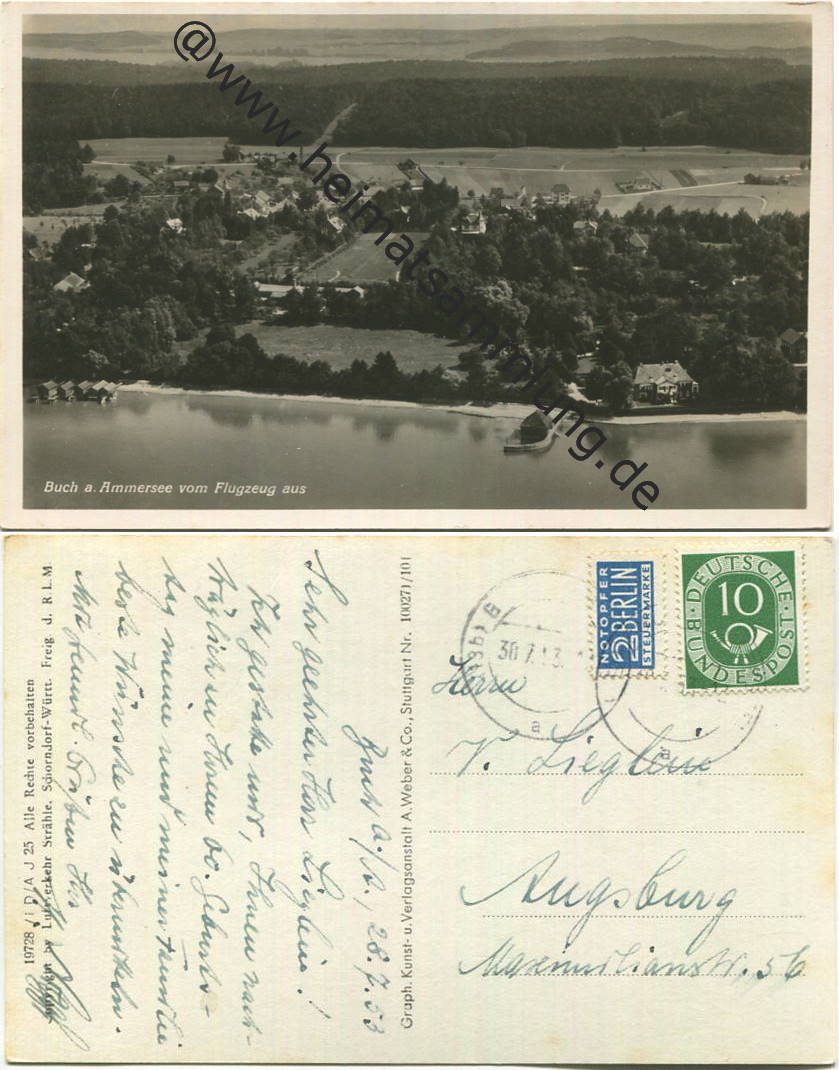 @www.heimatsammlung.de
Buch a. Ammersee vom Flugzeug aus
19728 / i D/A J 25 Alle Rechte vorbehalten
Copyright by Luftverkehr Strähle, Schorndorf-Württ. Freig. d. R.L.M.
Buch a./A., 28.7.53
Sehr geehrter Herr Lieglein!
Ich gestatte mir, Ihnen nach-
träglich zu Ihrem 60. Geburts-
tag meine und meiner Familie
beste Wünsche zu übermitteln.
Mit freundl. Grüßen Ihr
Graph. Kunst- u. Verlagsanstalt A. Weber & Co., Stuttgart Nr. 100271/101
30.7.53
a
NOTOPFER
2 BERLIN
STEUERMARKE
DEUTSCHE
10
BUNDESPOST
Herrn
V. Lieglein
Augsburg
Maximilianstr. 56